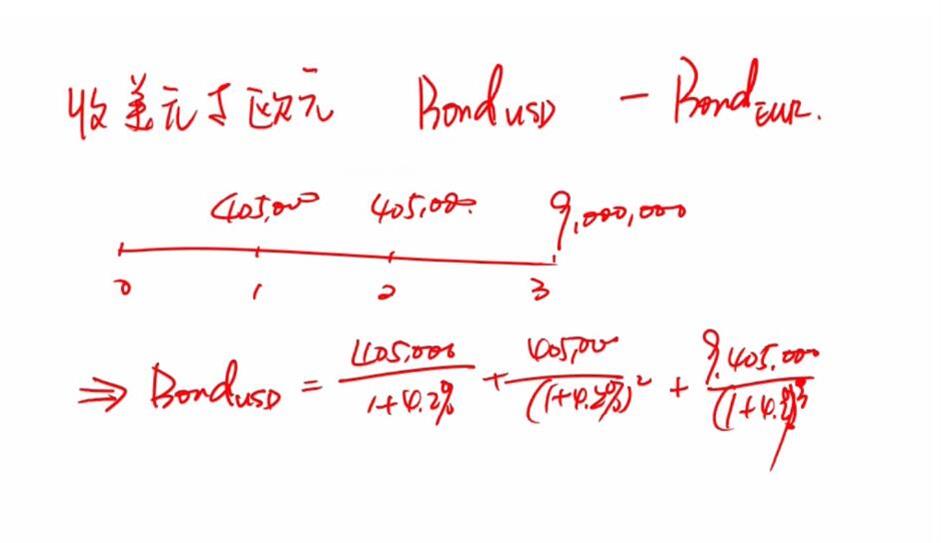 收美元于欧元 Bond_USD - Bond_EUR.
405,000 405,000. 9,000,000
0 1 2 3
⇒ Bond_USD = 405,000/(1+4.2%) + 405,000/(1+4.2%)^2 + 9,405,000/(1+4.2)^3